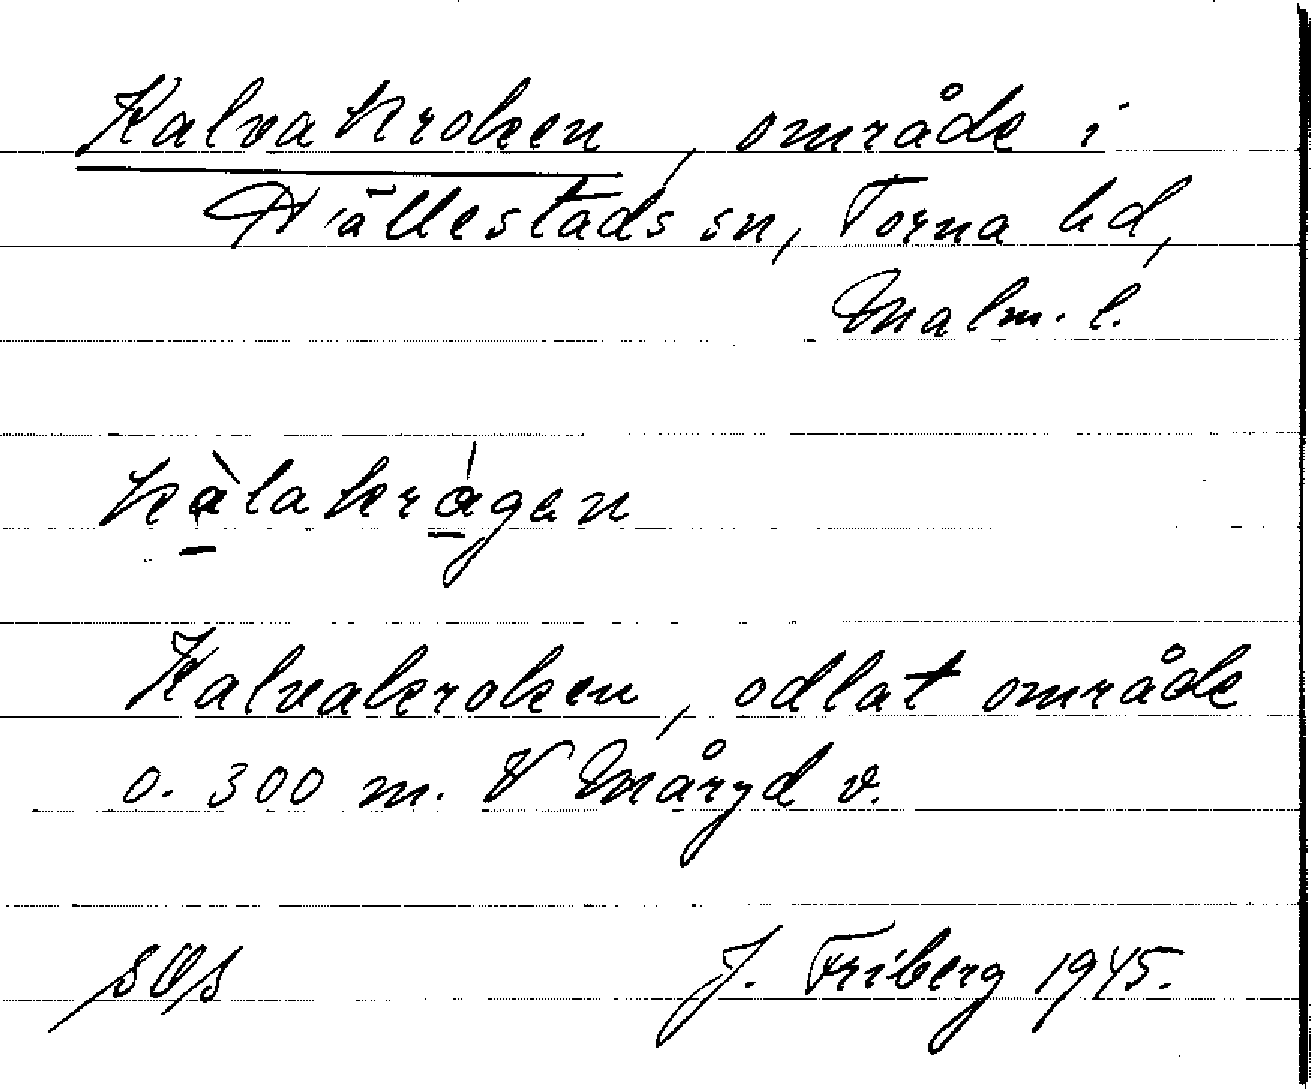 Kalvakroken, område i
Hällestads sn, Torna hd,
Malm. l.
kàlakrágen
Kalvakroken, odlat område
o. 300 m. V Måryd v.
J. Friberg 1945.